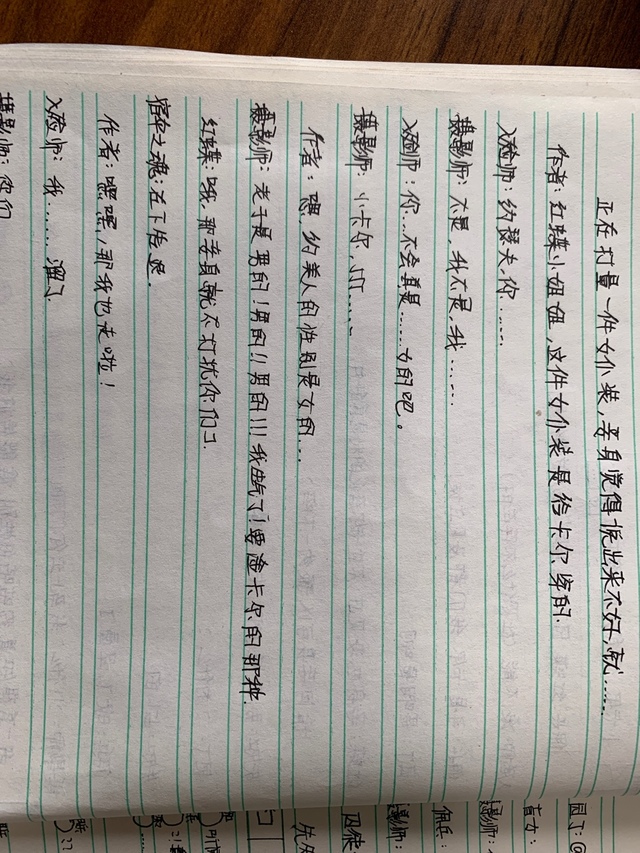 正在打量一件女仆装,妾身觉得说出来不好,就……
作者:红蝶小姐姐,这件女仆装是给卡尔穿的.
入殓师:约瑟夫,你……
摄影师:不是,我不是,我……
入殓师:你……不会真是……女的吧。
摄影师:小卡尔,
作者:嗯,约美人的性别是女的…
摄影师:老子是男的!男的!!男的!!!我生气了!要渣卡尔的那种.
红蝶:哦,那妾身就不打扰你们了.
宿伞之魂:在下告退.
作者:嘿嘿,那我也走啦!
入殓师:我……溜了.
摄影师:你们
园丁:
盲女:
佣兵:
摄影师:
囚徒:
先知